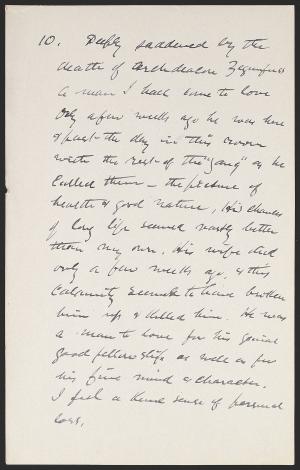 10. Deeply saddened by the
death of Archdeacon Ziegenfuss
a man I had come to love
Only a few weeks ago he was here
& past the day in this room
with the rest of the "gang" as he
called them — the picture of
health & good nature, His chances
of long life seemed vastly better
than my own. His wife died
only a few weeks ago, & this
calamity seemed to have broken
him up & killed him. He was
a man to love for his genial
good fellowship as well as for
his fine mind & character.
I feel a keen sense of personal
loss.